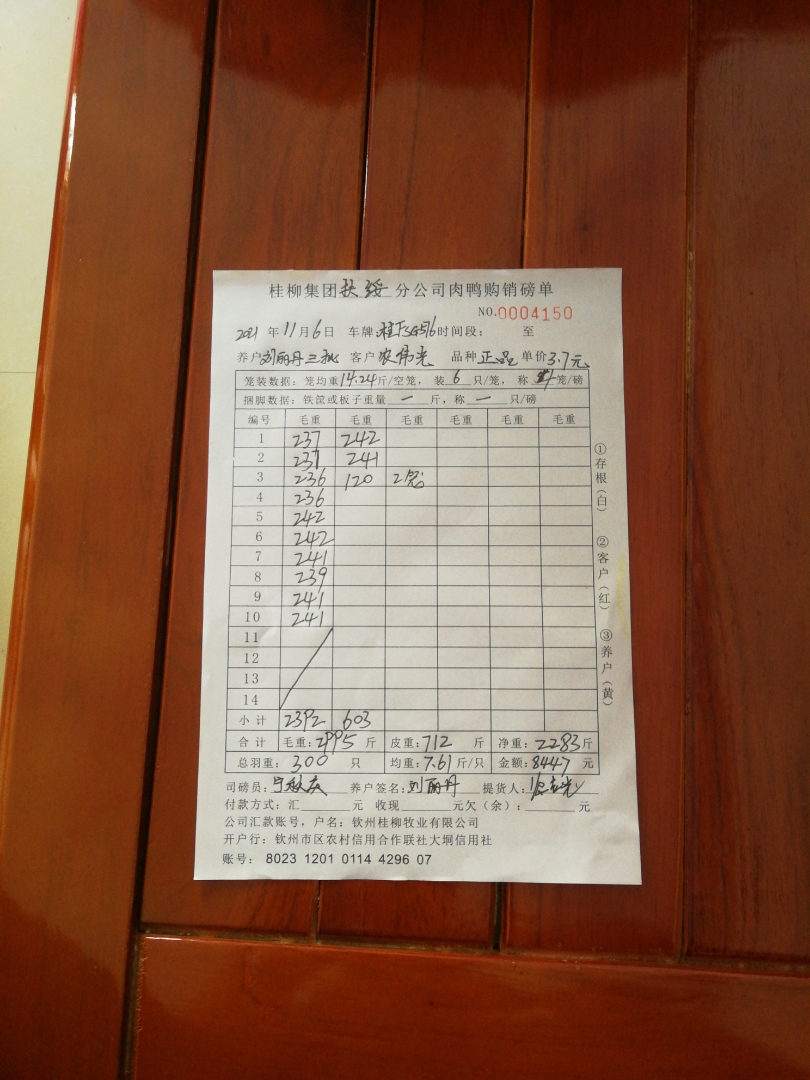 桂柳集团扶绥分公司肉鸭购销磅单
NO.0004150
2021年11月6日 车牌: 时间段: 至
养户刘丽丹三批 客户农伟光 品种正品 单价3.7元
笼装数据:笼均重14.24斤/空笼,装6只/笼,称4笼/磅
捆脚数据:铁筐或板子重量一斤,称一只/磅
编号 毛重 毛重 毛重 毛重 毛重 毛重
1 237 242
2 237 241
3 236 120 2笼
4 236
5 242
6 242
7 241
8 239
9 241
10 241
11
12
13
14
小计 2392 603
合计 毛重:2995斤 皮重:712斤 净重:2283斤
总羽重:300只 均重:7.61斤/只 金额:8447元
司磅员: 养户签名:刘丽丹 提货人:
付款方式:汇 元 收现 元欠(余): 元
公司汇款账号,户名:钦州桂柳牧业有限公司
开户行:钦州市区农村信用合作联社大垌信用社
账号: 8023 1201 0114 4296 07
①存根(白)
②客户(红)
③养户(黄)